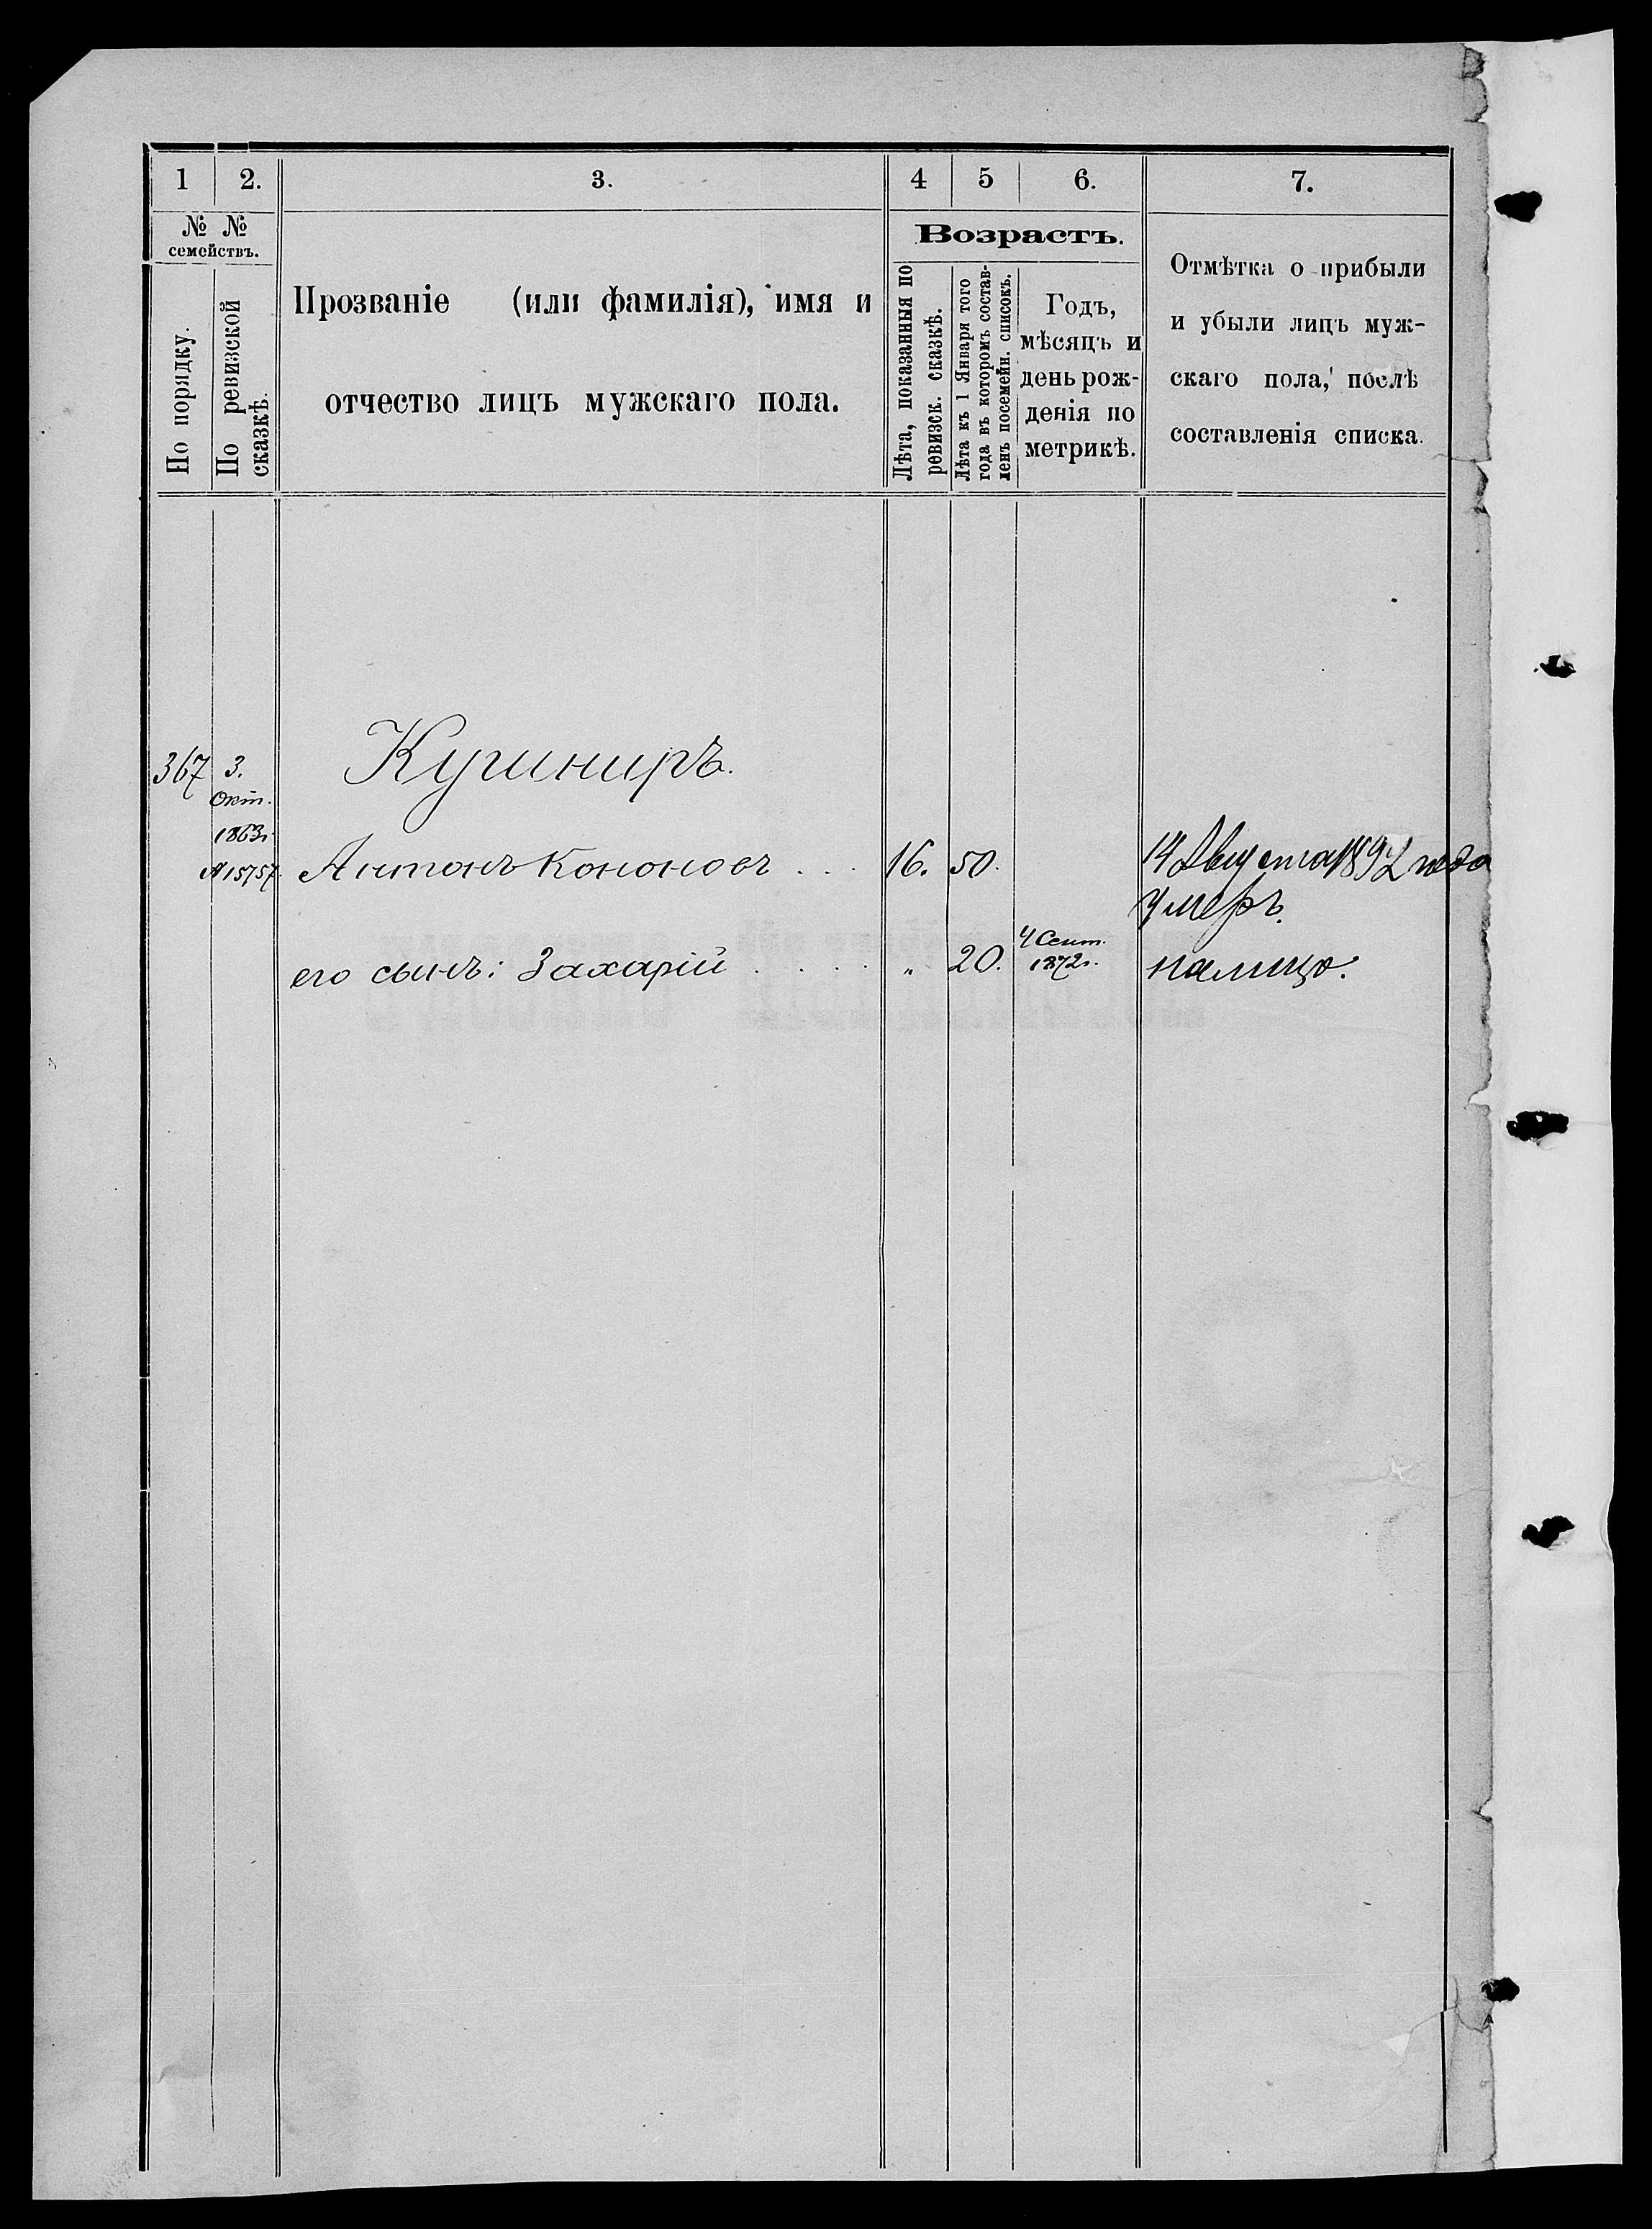 1 2. 3. 4 5 6. 7.
№ № семействъ.
По порядку.
По ревизской сказкѣ.
Прозваніе (или фамилія), имя и
отчество лицъ мужскаго пола.
Возрастъ.
Лѣта, показанныя по
ревизск. сказкѣ.
Лѣта къ 1 Января того
года въ которомъ состав-
ленъ посемейн. списокъ.
Годъ,
мѣсяцъ и
день рож-
денія по
метрикѣ.
Отмѣтка о прибыли
и убыли лицъ муж-
скаго пола, послѣ
составленія списка.
367 3. Кушниръ.
Окт.
1863г.
№15757. Антонъ Кононовъ . . . 16. 50. 14 Августа 1892 года
умеръ.
его сынъ: Захарій . . . . „ 20. 4 Сент. 1872г. налицо.